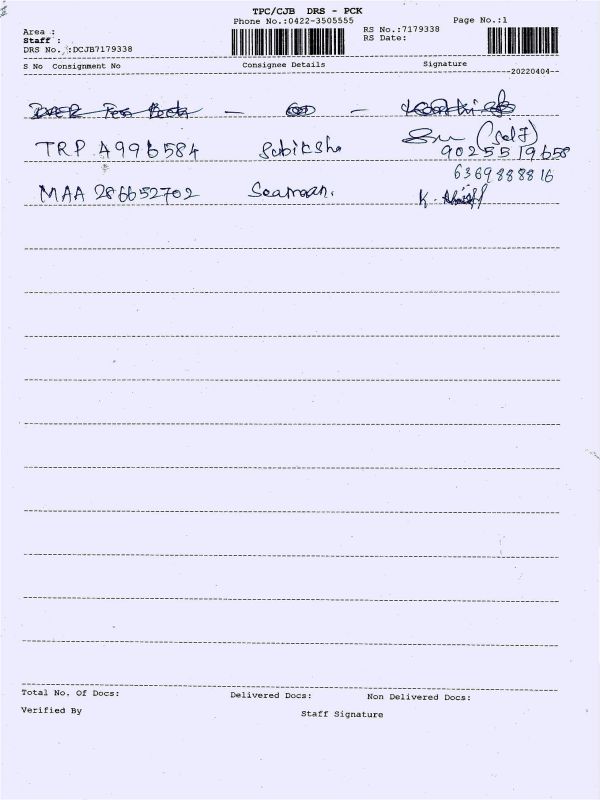 TPC/CJB DRS - PCK
Phone No.:0422-3505555
Page No.:1
Area :
RS No.:7179338
Staff :
RS Date:
DRS No. :DCJB7179338
S No Consignment No Consignee Details Signature
--20220404--
TRP A996584 Subiksha (self)
9025519658
6369888816
MAA 286652702 K.
Total No. Of Docs: Delivered Docs: Non Delivered Docs:
Verified By Staff Signature